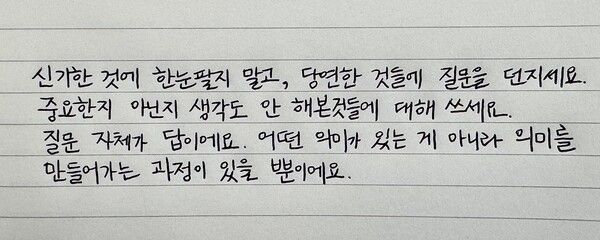 신기한 것에 한눈팔지 말고, 당연한 것들에 질문을 던지세요.
중요한지 아닌지 생각도 안 해본것들에 대해 쓰세요.
질문 자체가 답이에요. 어떤 의미가 있는 게 아니라 의미를
만들어가는 과정이 있을 뿐이에요.